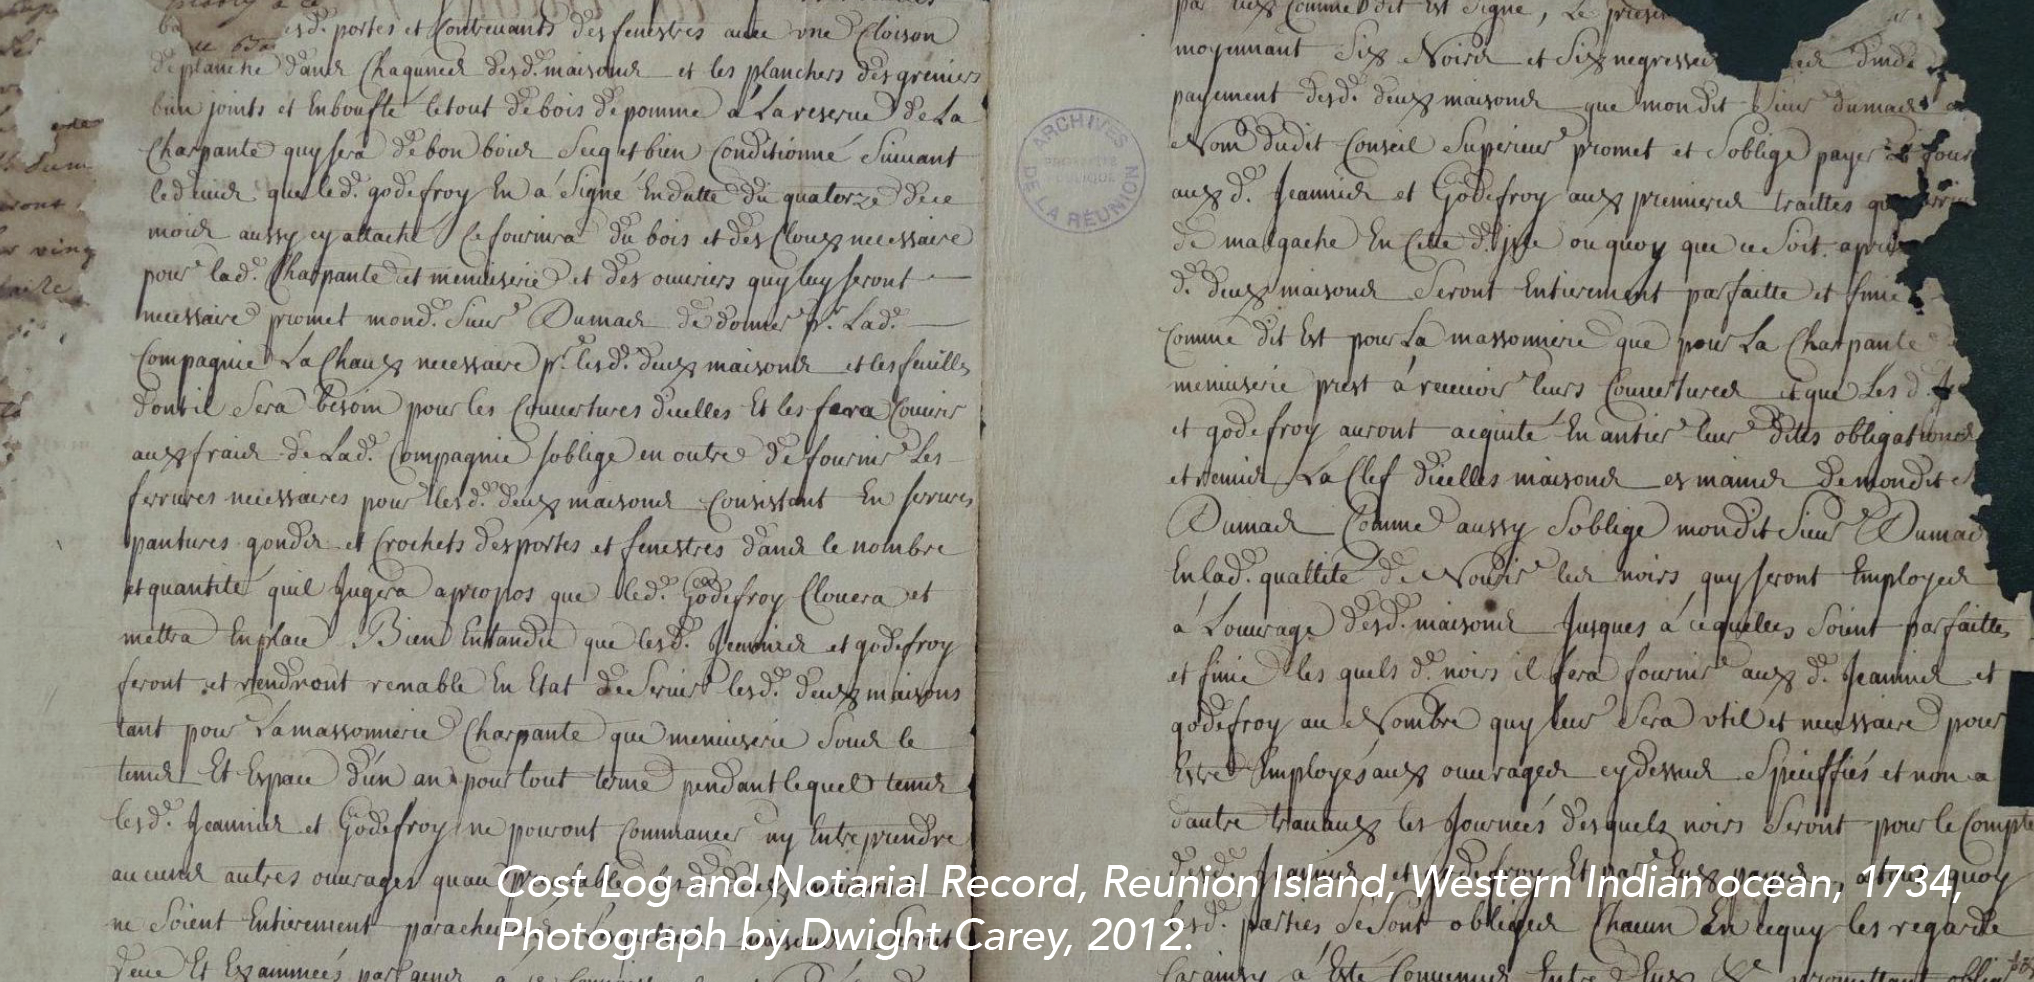 esd. portes et Contrevants des fenestres avec une Cloison
de planche dans Chaqunes desd. maisons et les planchers des greniers
bien joints et Enboufté le tout de bois de pomme a La reserve de La
Charpante quy sera de bon bois Secq et bien Conditionné Suivant
le devis que led. godefroy En a Signé En datte du quatorze de ce
mois aussy cy attaché Ce fournira du bois et des Cloux necessaire
pour lad. Charpante et menuiserie et des ouvriers quy luy seront
necessaire promet mond. Sieur Dumas de donner pr. Lad.
Compagnie La Chaux necessaire pr. lesd. deux maisons et les feuilles
dont il Sera besoin pour les Couvertures d'icelles Et les fera Couvrir
aux frais de Lad. Compagnie soblige en outre de fournir Les
ferrures necessaires pour lesd. deux maisons Consistant En serrures
pantures gonds et Crochets des portes et fenestres dans le nombre
et quantité quil Jugera apropos que led. Godefroy Clouera et
mettra En place Bien Entandu que lesd. Jeannier et godefroy
feront et rendront renable En Etat de Servir lesd. deux maisons
tant pour La massonnerie Charpante que menuiserie Sous le
tems Et Espace d'un an pour tout terme pendant lequel tems
lesd. Jeannier et Godefroy ne pouront Commancer ny Entreprendre
aucuns autres ouvrages quau prealable lesd. deux maisons
ne Soient Entierement
veue Et Examinées par gens
par eux Comme dit Est Signé, Le present
moyennant Six Noirs et Six negresses d'inde
payement desd. deux maisons que mondit Sieur dumas
Nom dudit Conseil Superieur promet et Soblige payer
aux d. Jeannier et Godefroy aux premieres traittes
de malgache En Cette d. Isle ou quoy que ce Soit apres
d. deux maisons Seront Entierement parfaitte et finie
Comme dit Est pour La massonnerie que pour La Charpante
menuiserie prest a recevoir leurs Couvertures et que Les d.
et godefroy auront aquité En antier leur dites obligations
et remis La Clef d'icelles maisons es mains de mondit
Dumas Comme aussy Soblige mondit Sieur Dumas
En lad. quallité de Nourir les noirs quy seront Employes
a Louvrage desd. maisons Jusques a ce quelles Soient parfaittes
et finie les quels d. noirs il fera fournir aux d. Jeannier et
godefroy au Nombre quy leur Sera util et necessaire pour
Estre Employés aux ouvrages cy dessus Spéciffiés et non a
dautre travaux les Journées desquels noirs Seront pour le Compte
desd. Jeannier et godefroy Et par Eux
lesd. parties Se Sont obligées Chacun En ce quy les regarde
Car ainsy a Este Convenus Entre Eux
ARCHIVES DE LA RÉUNION
PROPRIÉTÉ PUBLIQUE
Cost Log and Notarial Record, Reunion Island, Western Indian ocean, 1734,
Photograph by Dwight Carey, 2012.